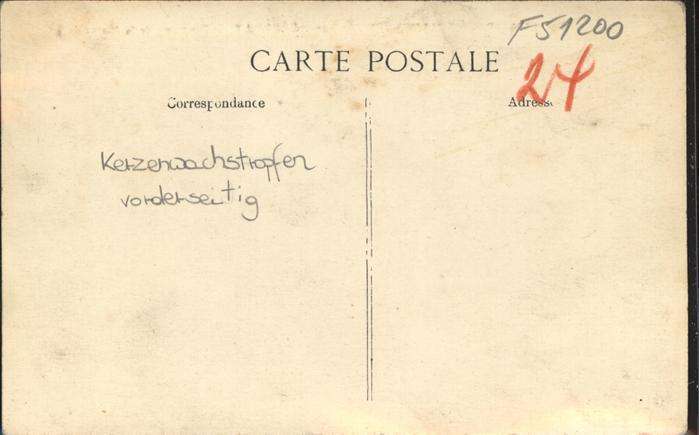 F51200
CARTE POSTALE
24
Correspondance
Adresse
Kerzenwachstropfen
vorderseitig